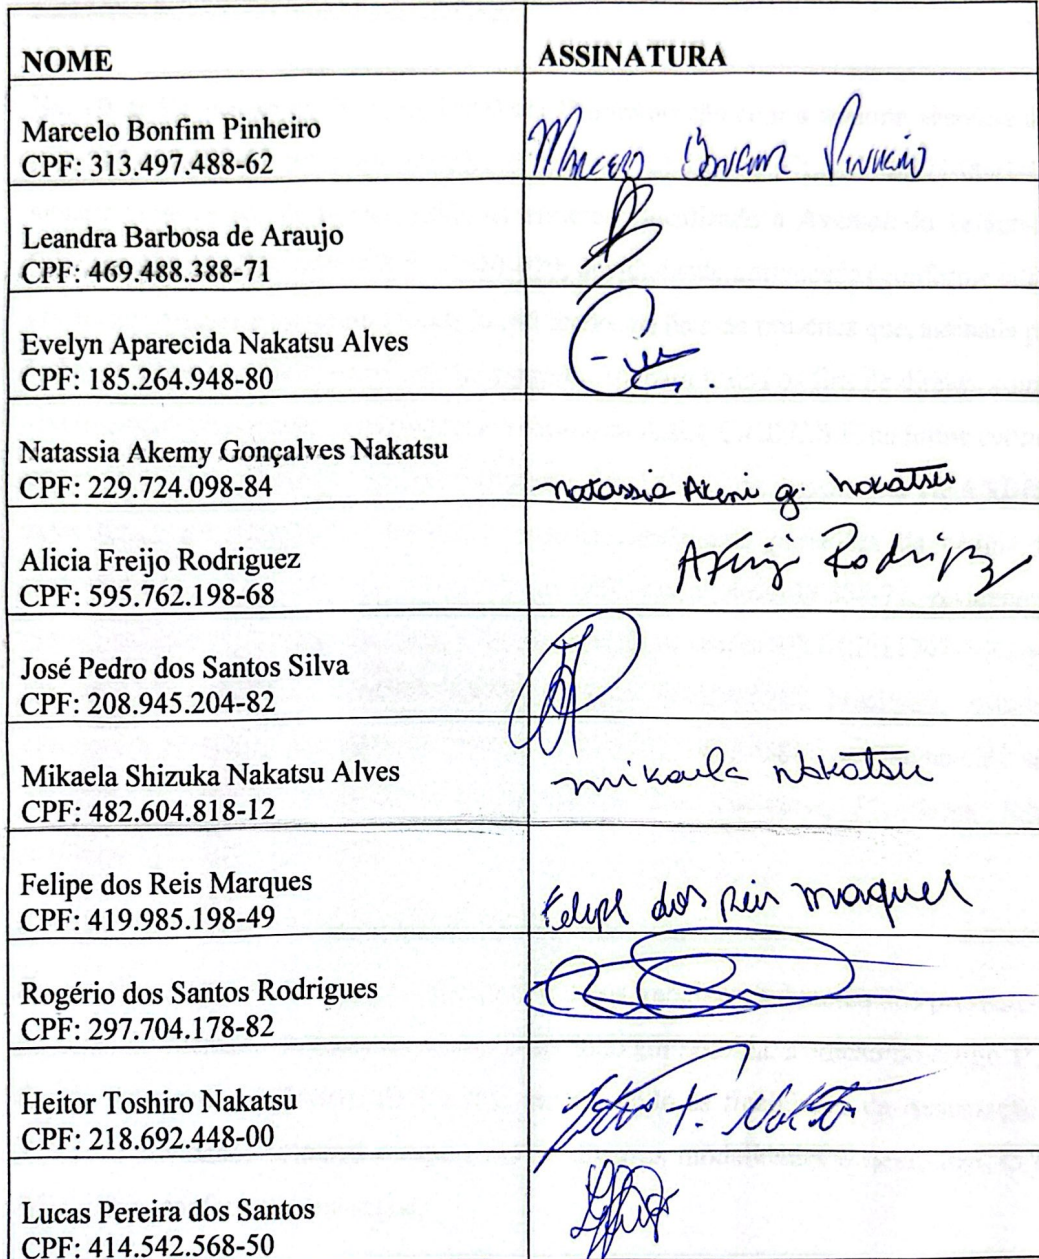 NOME
ASSINATURA
Marcelo Bonfim Pinheiro
CPF: 313.497.488-62
Marcelo Bonfim Pinheiro
Leandra Barbosa de Araujo
CPF: 469.488.388-71
Evelyn Aparecida Nakatsu Alves
CPF: 185.264.948-80
Natassia Akemy Gonçalves Nakatsu
CPF: 229.724.098-84
Natassia Akemi G. Nakatsu
Alicia Freijo Rodriguez
CPF: 595.762.198-68
Rodriguez
José Pedro dos Santos Silva
CPF: 208.945.204-82
Mikaela Shizuka Nakatsu Alves
CPF: 482.604.818-12
mikaela Nakatsu
Felipe dos Reis Marques
CPF: 419.985.198-49
Felipe dos Reis Marques
Rogério dos Santos Rodrigues
CPF: 297.704.178-82
Heitor Toshiro Nakatsu
CPF: 218.692.448-00
Lucas Pereira dos Santos
CPF: 414.542.568-50